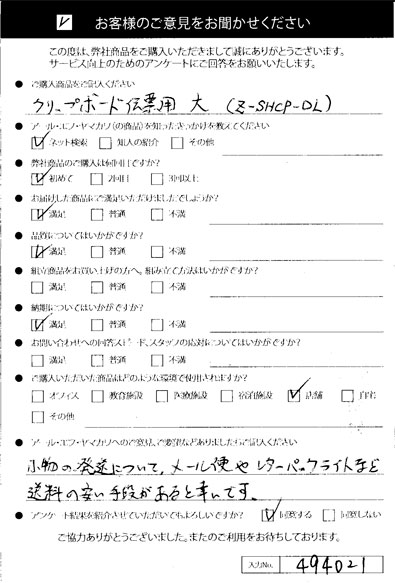 お客様のご意見をお聞かせください
この度は、弊社商品をご購入いただきまして誠にありがとうございます。
サービス向上のためのアンケートにご回答をお願いいたします。
● ご購入商品をご記入ください
クリップボード伝票用 大 (Z-SHCP-DL)
● アール・エフ・ヤマカワ(の商品)を知ったきっかけを教えてください
ネット検索 知人の紹介 その他
● 弊社商品のご購入は何回目ですか?
初めて 2回目 3回以上
● お届けした商品にご満足いただけましたでしょうか?
満足 普通 不満
● 品質についてはいかがですか?
満足 普通 不満
● 組立商品をお買い上げの方へ。組み立て方法はいかがですか?
満足 普通 不満
● 納期についてはいかがですか?
満足 普通 不満
● お問い合わせへの回答スピード、スタッフの応対についてはいかがですか?
満足 普通 不満
● ご購入いただいた商品はどのような環境で使用されますか?
オフィス 教育施設 医療施設 宿泊施設 店舗 自宅
その他
● アール・エフ・ヤマカワへのご意見、ご要望などありましたらご記入ください
小物の発送について、メール便やレターパックライトなど
送料の安い手段があると幸いです。
● アンケート結果を紹介させていただいてもよろしいですか? 同意する 同意しない
ご協力ありがとうございました。またのご利用をお待ちしております。
入力No. 494021